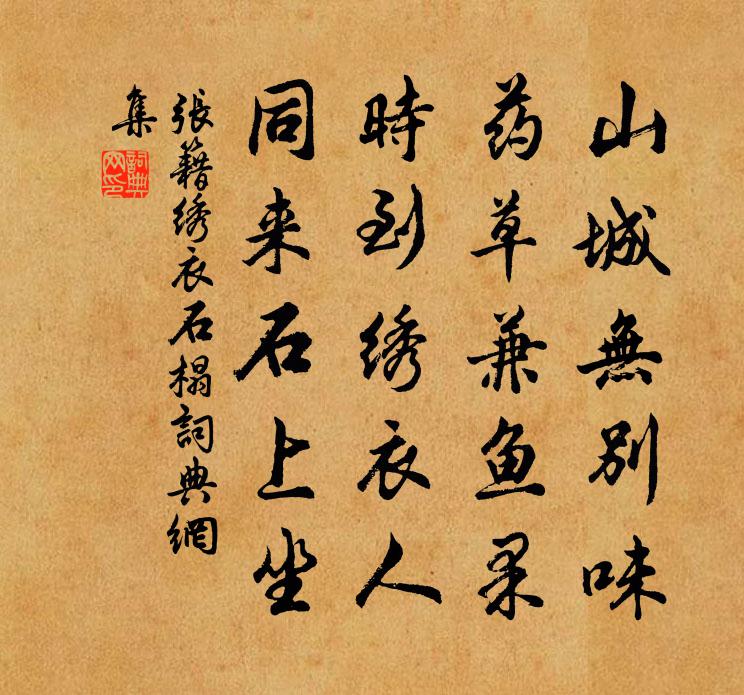 山城無別味
药草兼鱼果
時到绣衣人
同来石上坐
張籍绣衣石榻詞典網
集
詞典
网印